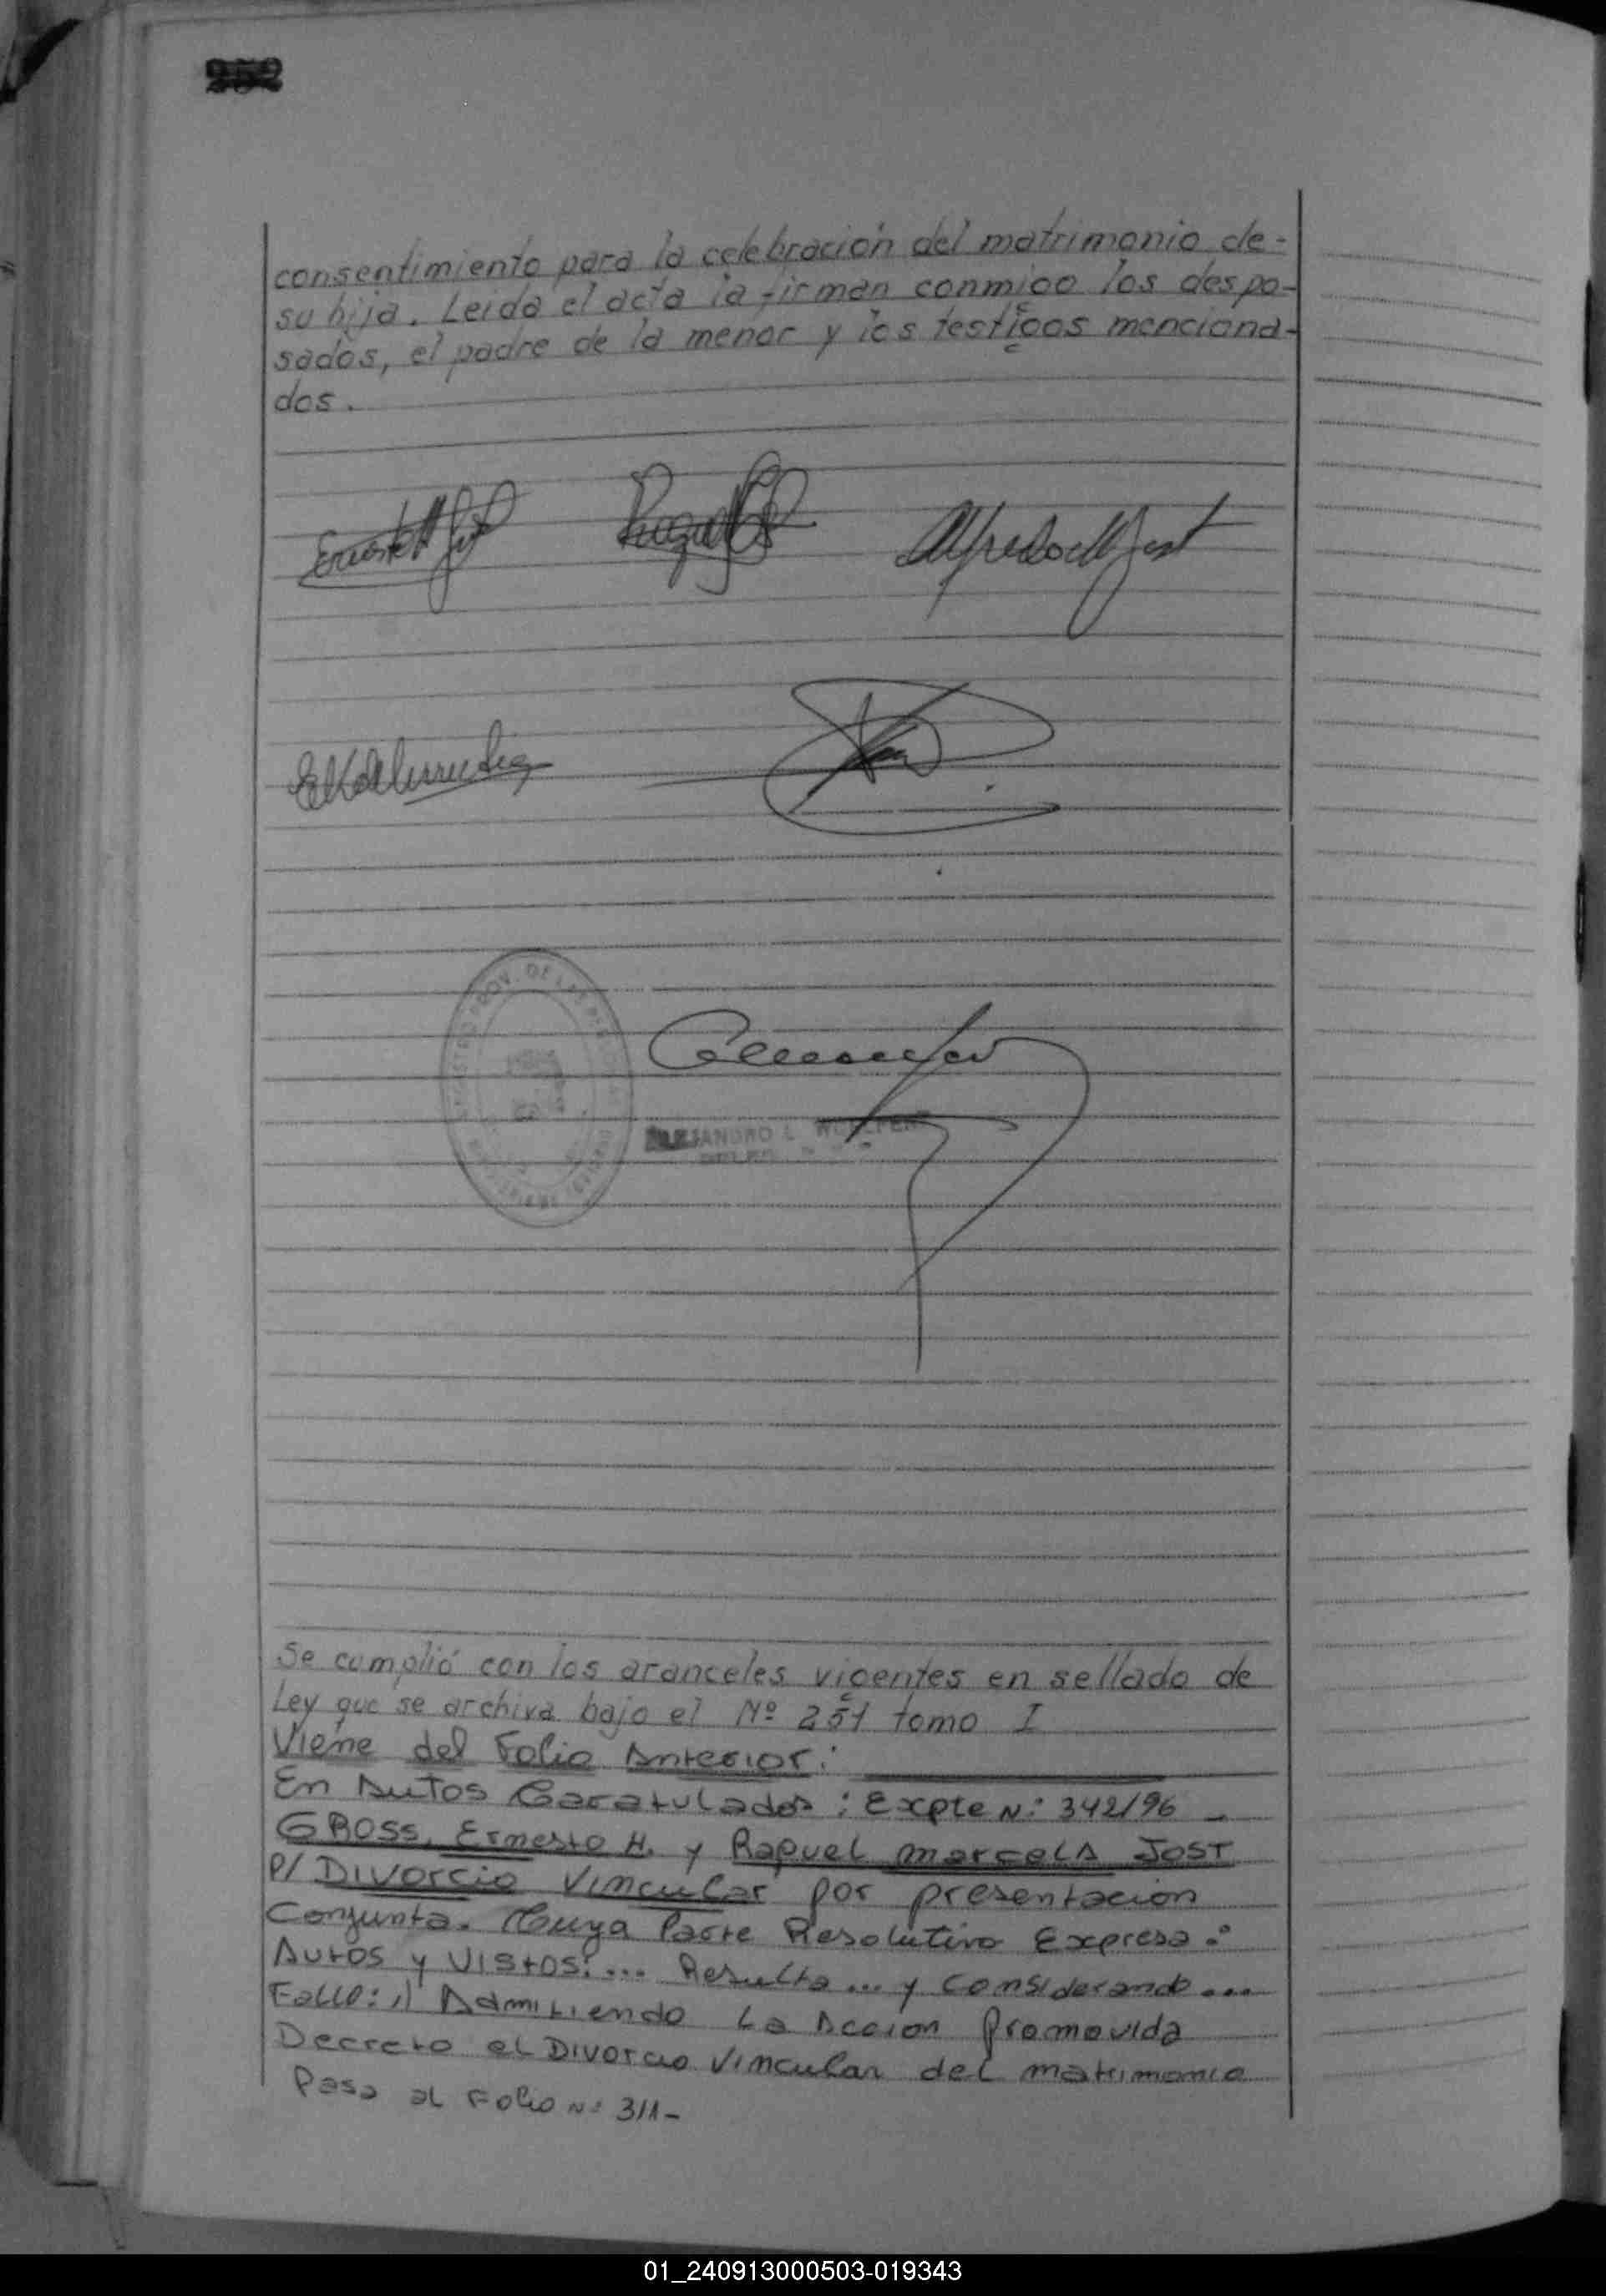 252
consentimiento para la celebración del matrimonio de-
su hija. Leida el acta la firman conmigo los despo-
sados, el padre de la menor y los testigos menciona-
dos.
Alfredo M Jost
PROV. DE
ALEJANDRO L.
Se cumplió con los aranceles vigentes en sellado de
Ley que se archiva bajo el Nº 251 tomo I
Viene del Folio Anterior:
En Autos Caratulados: Expte N: 342/96 _
GROSS, Ernesto H. y Raquel Marcela JOST
P/ Divorcio Vincular por presentacion
Conjunta. Cuya Parte Resolutiva Expresa:
Autos y Vistos:... Resulta... y Considerando...
Fallo: 1) Admitiendo La Accion Promovida
Decreto el Divorcio Vincular del matrimonio
Pasa al Folio N: 311-
01_240913000503-019343